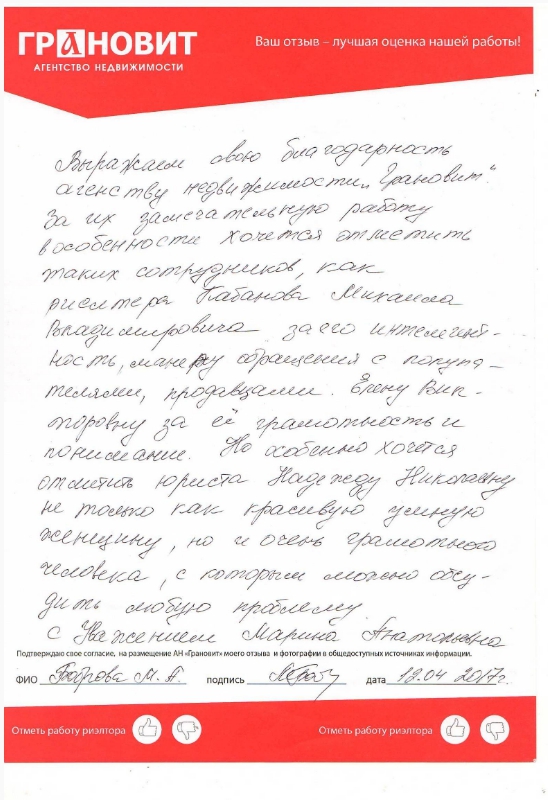 ГРАНОВИТ
АГЕНТСТВО НЕДВИЖИМОСТИ
Ваш отзыв – лучшая оценка нашей работы!
Выражаем свою благодарность
агенству недвижимости „Грановит".
За их замечательную работу
в особенности хочется отметить
таких сотрудников, как
риелтера Кабанова Михаила
Владимировича за его интелегент-
ность, манеру обращения с покупа-
телями, продавцами. Елену Вик-
торовну за её грамотность и
понимание. Но особенно хочется
отметить юриста Надежду Николаевну
не только как красивую умную
женщину, но и очень грамотного
человека, с которым можно обсу-
дить любую проблему.
С Уважением Марина Анатольевна
Подтверждаю свое согласие, на размещение АН «Грановит» моего отзыва и фотографии в общедоступных источниках информации.
ФИО Боброва М. А. подпись дата 18.04 2017г.
Отметь работу риэлтора Отметь работу риэлтора